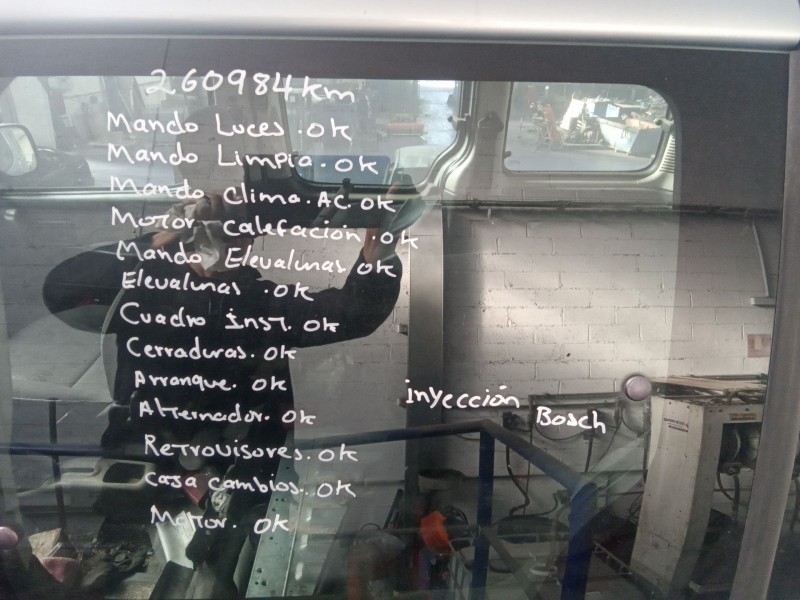 260984km
Mando Luces.ok
Mando Limpia.ok
Mando Clima.AC.ok
Motor calefación.ok
Mando Elevalunas ok
Elevalunas .ok
Cuadro inst. ok
Cerraduras. ok
Arranque. ok
inyección
Alternador. ok
Bosch
Retrovisores. ok
Casa cambios. ok
Motor. ok